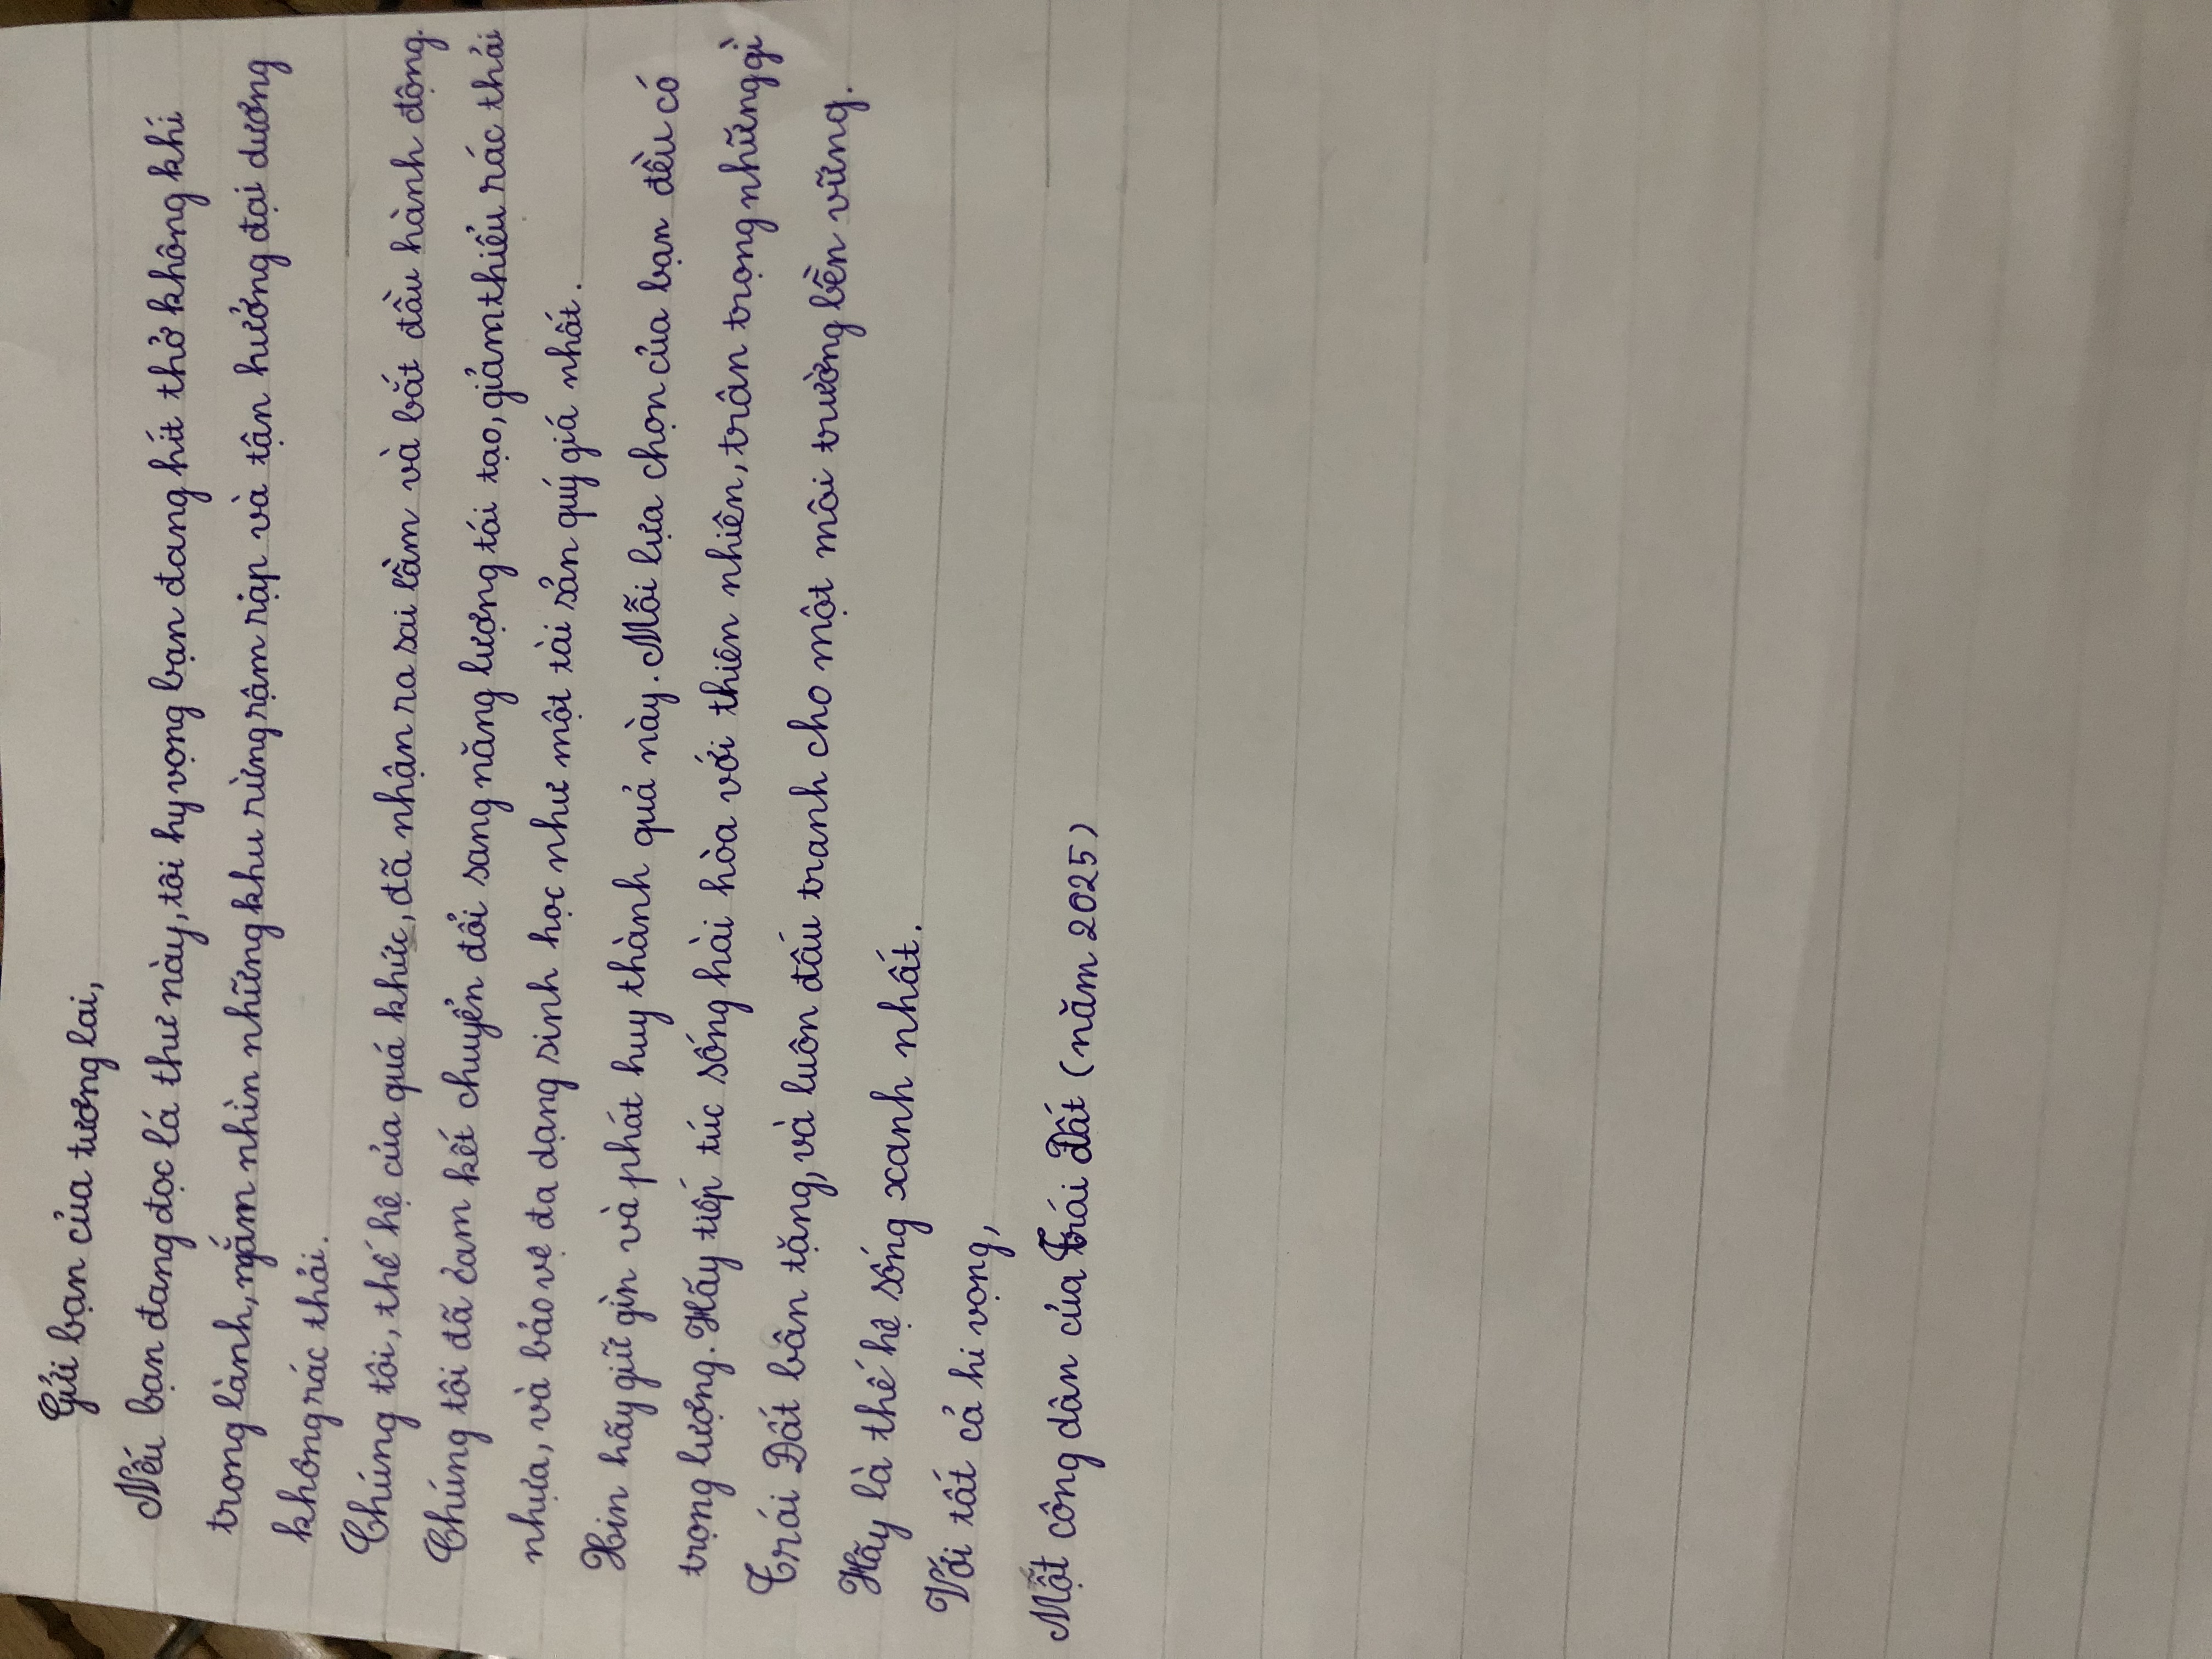 Gửi bạn của tương lai,
Nếu bạn đang đọc lá thư này, tôi hy vọng bạn đang hít thở không khí
trong lành, ngắm nhìn những khu rừng rậm rạp và tận hưởng đại dương
không rác thải.
Chúng tôi, thế hệ của quá khức, đã nhận ra sai lầm và bắt đầu hành động.
Chúng tôi đã cam kết chuyển đổi sang năng lượng tái tạo, giảm thiểu rác thải
nhựa, và bảo vệ đa dạng sinh học như một tài sản quý giá nhất.
Xin hãy giữ gìn và phát huy thành quả này. Mỗi lựa chọn của bạn đều có
trọng lượng. Hãy tiếp túc sống hài hòa với thiên nhiên, trân trọng những gì
Trái Đất bân tặng, và luôn đấu tranh cho một môi trường bền vững.
Hãy là thế hệ sống xanh nhất.
Với tất cả hi vọng,
Một công dân của Trái Đất (năm 2025)